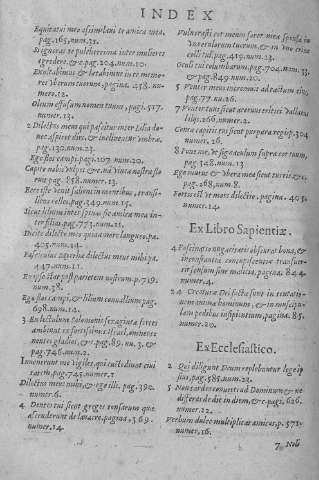 INDEX
Equitatui meo assimilavi te amica mea.
pag.165,num.31.
egredere, & c pag.204.num.20.
Exultabimus & lætabimur in te memo-
res vberum tuorum, pagina, 458.
numero.12.
Oleum effusum nomen tuum, pag.517.
numer.13.
2 Dilectus meus qui pascitur inter Lilia do-
nec aspiret dies, & inclinentur vmbræ,
pag.130.num.23.
Ego flos campi, pag.107 num.20.
Capite nobis Vulpes, &c. nã vinea nostra flo
ruit, pag. 858. numer. 13.
Ecce iste venit saliens in montibus, transi-
liens colles, pag.349.num.15.
Sicut lilium inter spinas sic amica mea in-
ter filias, pag.773.num.21.
Dicit dilectus meus mihi languore, pa.
405.num.14.
Fasciculus myrrhæ dilectus meus mihi pa.
447.num.11.
En ipse stat post parietem nostrum. p.719.
num.38.
Ego flos campi, & lilium convallium pag.
698.num.14.
3 En lectulum Salomonis sexaginta fortes
ambiunt ex fortissimis Israel, omnes te-
nentes gladios, &c pag.89. nu. 3, &
pag.746.num.2.
Invenerunt me Vigiles, qui custodiunt civi
tatem, pag.745.numer.1.
Dilectus meus mihi, & ego illi. pag.390.
numer.6.
4 Dentes tui sicut greges tonsarum quæ
ascenderunt de lavacro, pagina, 369.
numer.14.
Vulnerasti cor meum soror mea sponsa in
vno oculorum tuorum, & in vno crine
colli tui, pag.415.num.23.
Oculi tui columbarum, pag.704.num.13.
& pag.849 num.20.
5 Venter meus intremuit ad tactum eius,
pag.77.nu.26.
7 Venter tuus sicut acervus tritici vallatus
liliis, 266.numer.2.
Coma capitis tui sicut purpura regis, p.304
numer.26.
8 Pone me, vt signaculum supra cor tuum,
pag.348.num.13
Ego murus & vbera mea sicut turris, &c.
pag.268,num.8.
Fortis est vt mors dilectio, pag.405.
numer.14.
Ex Libro Sapientiæ.
4 Fascinatio nugacitatis obscurat bona, &
inconstantia concupiscentiæ transver-
tit sensum sine malitia, pagina, 844.
numer.4.
14 Creaturæ Dei factæ sunt in tentatio-
nem animis hominum, & in muscipu-
lam pedibus insipientium, pagina. 85.
numer.20.
Ex Ecclesiastico.
2 Qui diligunt Deum replebuntur lege ip-
sius, pag.585.num.23.
5 Non tardes converti ad Dominum & ne
differas de die in diem, & c.pag.626.
numer.12.
Verbum dulce multiplicat amicos, p.551
numer,16.
7 Noli